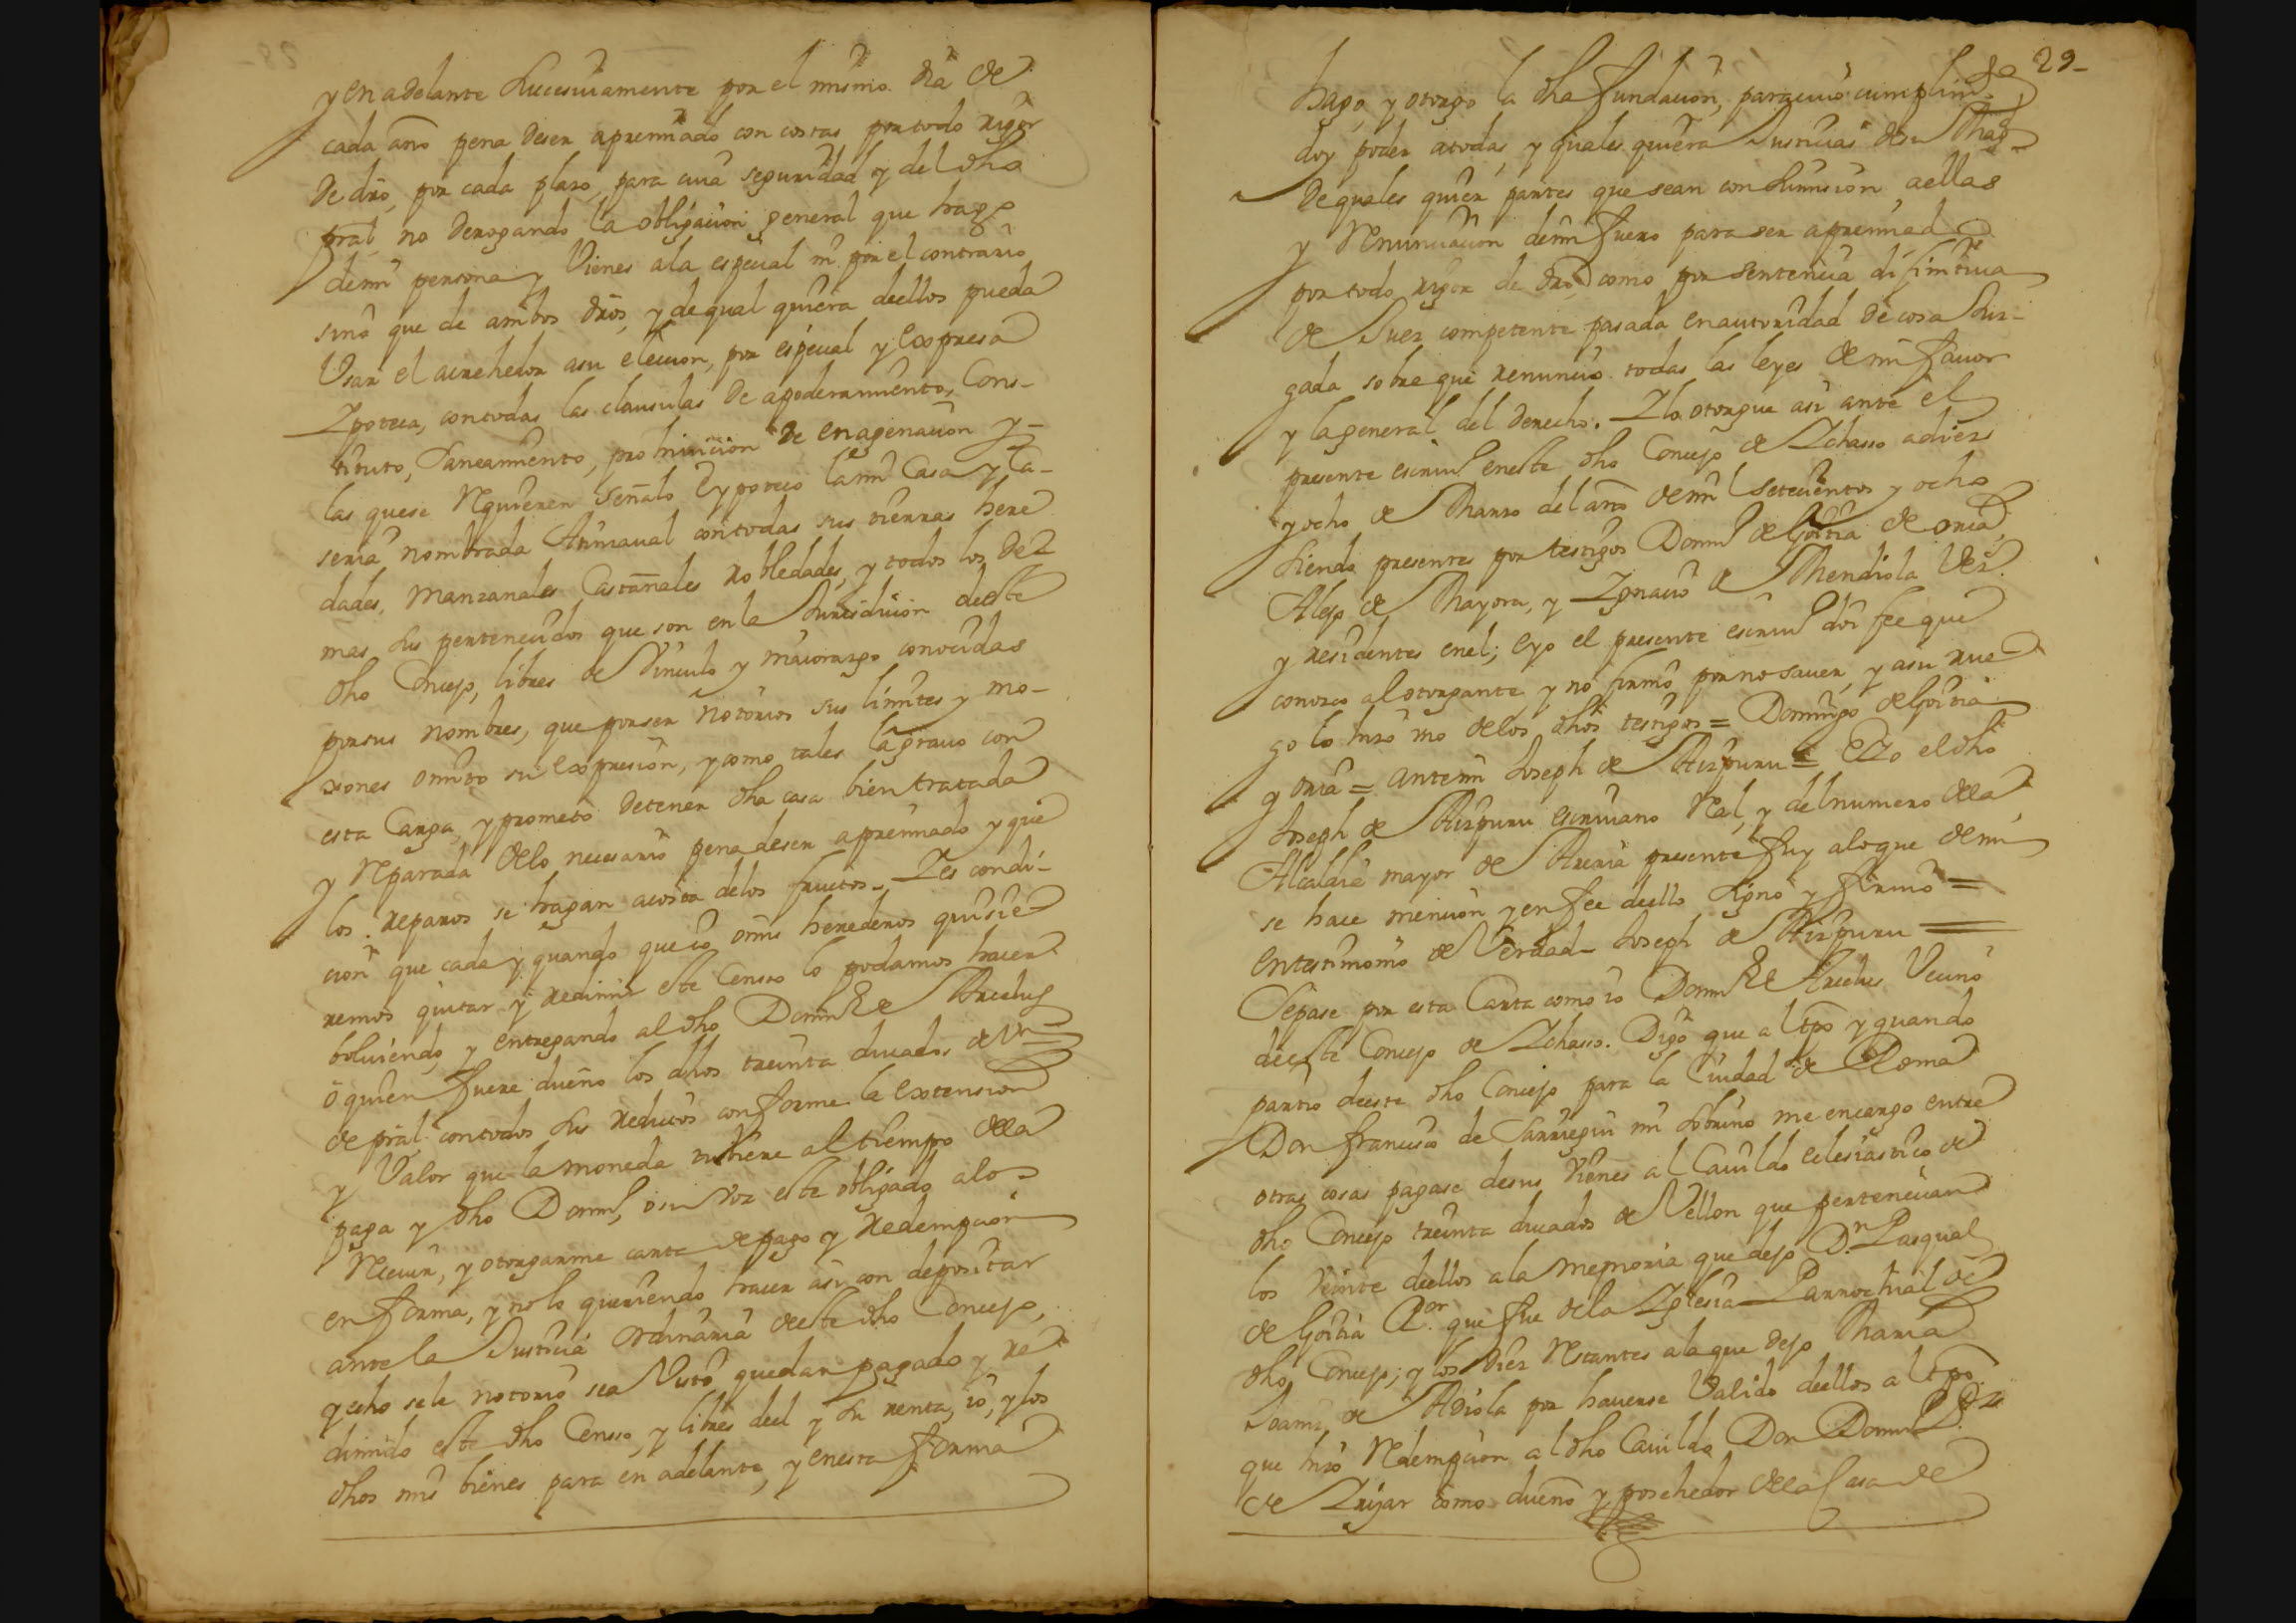 y en adelante sucesiuamente por el mismo dia de
cada año pena deser apremiado con costas por todo rigor
de dro, por cada plazo, para cuia seguridad y del dho
pral no derogando la obligacion general que hago
demi persona y Vienes ala especial ni por el contrario
sino que de ambos dros, y de qual quiera deellos pueda
Usar el acrehedor asu eleccion, por especial y expresa
Ypoteca, contodas las clausulas de apoderamiento, Cons-
tituto, Saneamiento, prohiuicion de enagenacion y-
las quese Requieren señalo Eypoteco lami Casa y Ca-
seria nombrada contodas sus tierras here
dades, manzanales Castañales robledades, y todos los de
mas sus pertenecidos que son en la Jurisdicion deeste
dho Concejo, libres de Vinculo y maiorazgo conocidas
porsus nombres, que por ser notorios sus limites y mo-
xones omito su expresion, y como tales la grauo con
esta Carga, y prometo detener dha casa bien tratada
y Reparada delo necesario pena deser apremiado y que
los reparos se hagan acosta delos fructos. Y es condi-
cion que cada y quando que io omis herederos quisie
remos quitar y redimir este Censo lo podamos hacer
boluiendo, y entregando al dho Domin de Arechus
o quien fuere dueño los dhos treinta ducados de Vn
de pral contodos sus reditos conforme la extension
y Valor que la moneda tubiere al tiempo dela
paga y dho Domin, o su Voz este obligado alo
Reciuir, y otorgarme carta de pago y redempcion
en forma, y nolo queriendo hacer asi con depositar
ante la Justicia Ordinaria deeste dho Concejo,
y echo sele notorio sea Visto quedar pagado y re
dimido este dho Censo, y libres deel y su renta, io, y los
dhos mis bienes para en adelante, y enesta forma
29-
hago, y otorgo la dha fundacion, paracuio cumplimto
doy poder atodas, y quales quiera Justicias desu Magd
de quales quier partes que sean con sumision aellas
y Renunciacion demi fuero para ser apremiado
por todo rigor de dro como por sentencia difinitiua
de Juez competente pasada en autoridad de cosa Juz-
gada sobre que renuncio todas las leyes de mi fauor
y la general del derecho. Y lo otorgue asi ante el
presente escriuo eneste dho Concejo de Ydiazo adiez
y ocho de Marzo del año de mil setecientos y ocho
siendo presentes por testigos Domin de Goitia de oria,
Alejo de Mayora, y Ygnacio de Mendiola Vezs
y residentes enel; e yo el presente escriuo doi fee que
conozco al otorgante, y no firmo por no sauer, y asu rue
go lo hizo vno delos dhos testigos = Domingo de Goitia
y oria = ante mi Joseph de Aizpuru = E Yo el dho
Joseph de Aizpuru escriuano Real, y del numero dela
Alcaldia mayor de Areria presente fuy alo que de mi
se hace mencion y en fee deello signo y firmo =
En testimonio de Verdad - Joseph de Aizpuru =
Sepase por esta Carta como io Domin de Arechus Vecino
deeste Concejo de Ydiazo. Digo que al tpo y quando
partio deeste dho Concejo para la Ciudad de Roma
Don francisco de Sarriegui mi sobrino me encargo entre
otras cosas pagase desus Vienes al Cauildo eclesiastico de
dho Concejo treinta ducados de Vellon que pertenecian
los Veinte deellos ala memoria que dejo Dn Pasqual
de Goitia Ror que fue dela Yglesia Parrochial de
dho Concejo; y los diez Restantes ala que dejo Maria
Joaniz de Adiola por hauerse Valido deellos al tpo
que hizo Redempcion al dho Cauildo Don Domin
de como dueño y posehedor dela Casa de